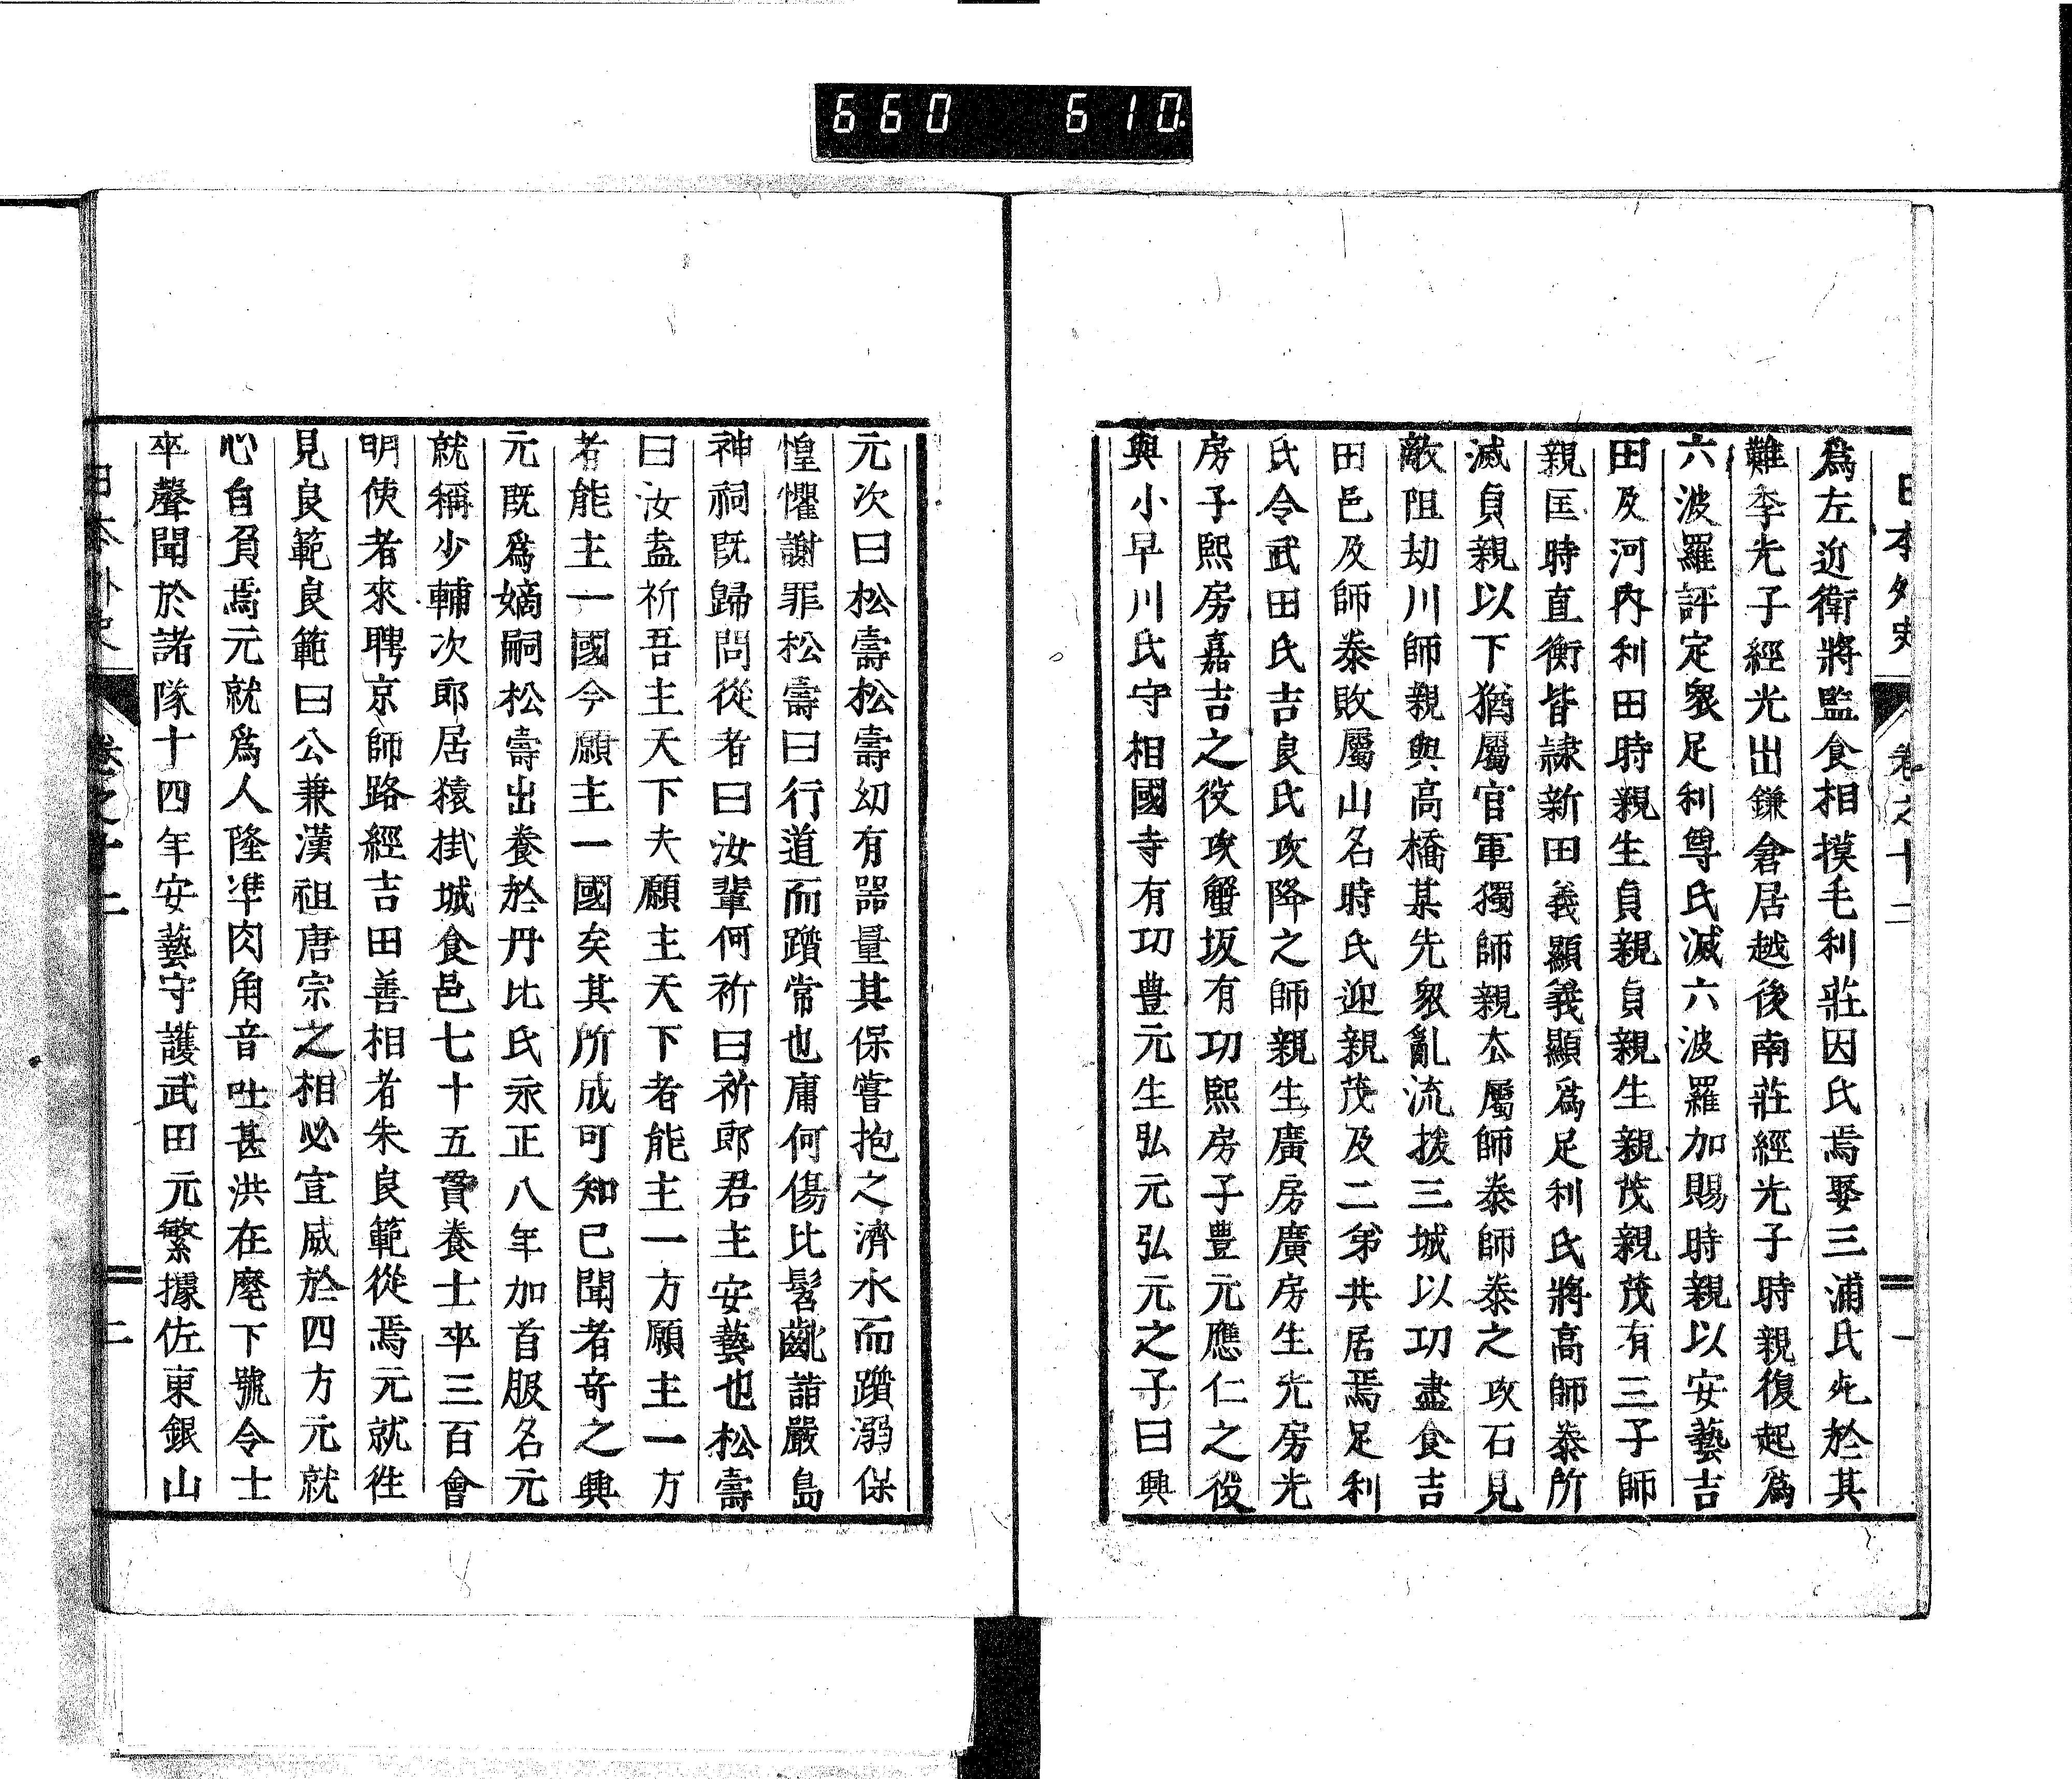 660 610
日本外史 卷之十二 一
爲左近衛將監食相摸毛利莊因氏焉娶三浦氏死於其
難季光子經光出鎌倉居越後南莊經光子時親復起爲
六波羅評定衆足利尊氏滅六波羅加賜時親以安藝吉
田及河內利田時親生貞親貞親生親茂親茂有三子師
親匡時直衡皆隷新田義顯義顯爲足利氏將高師泰所
滅貞親以下猶屬官軍獨師親厺屬師泰師泰之攻石見
敵阻劫川師親與高橋某先衆亂流拔三城以功盡食吉
田邑及師泰敗屬山名時氏迎親茂及二弟共居焉足利
氏令武田氏吉良氏攻降之師親生廣房廣房生光房光
房子熙房嘉吉之役攻蟹坂有功熙房子豊元應仁之役
與小早川氏守相國寺有功豊元生弘元弘元之子曰興
元次曰松壽松壽幼有器量其保嘗抱之濟水而躓溺保
惶懼謝罪松壽曰行道而躓常也庸何傷比髫齔詣嚴島
神祠既歸問從者曰汝輩何祈曰祈郎君主安藝也松壽
曰汝盍祈吾主天下夫願主天下者能主一方願主一方
者能主一國今願主一國矣其所成可知已聞者奇之興
元既爲嫡嗣松壽出養於丹比氏永正八年加首服名元
就稱少輔次郎居猿掛城食邑七十五貫養士卒三百會
明使者來聘京師路經吉田善相者朱良範從焉元就徃
見良範良範曰公兼漢祖唐宗之相必宣威於四方元就
心自負焉元就爲人隆準肉角音吐甚洪在麾下號令士
卒聲聞於諸隊十四年安藝守護武田元繁據佐東銀山
日本外史 卷之十二 二